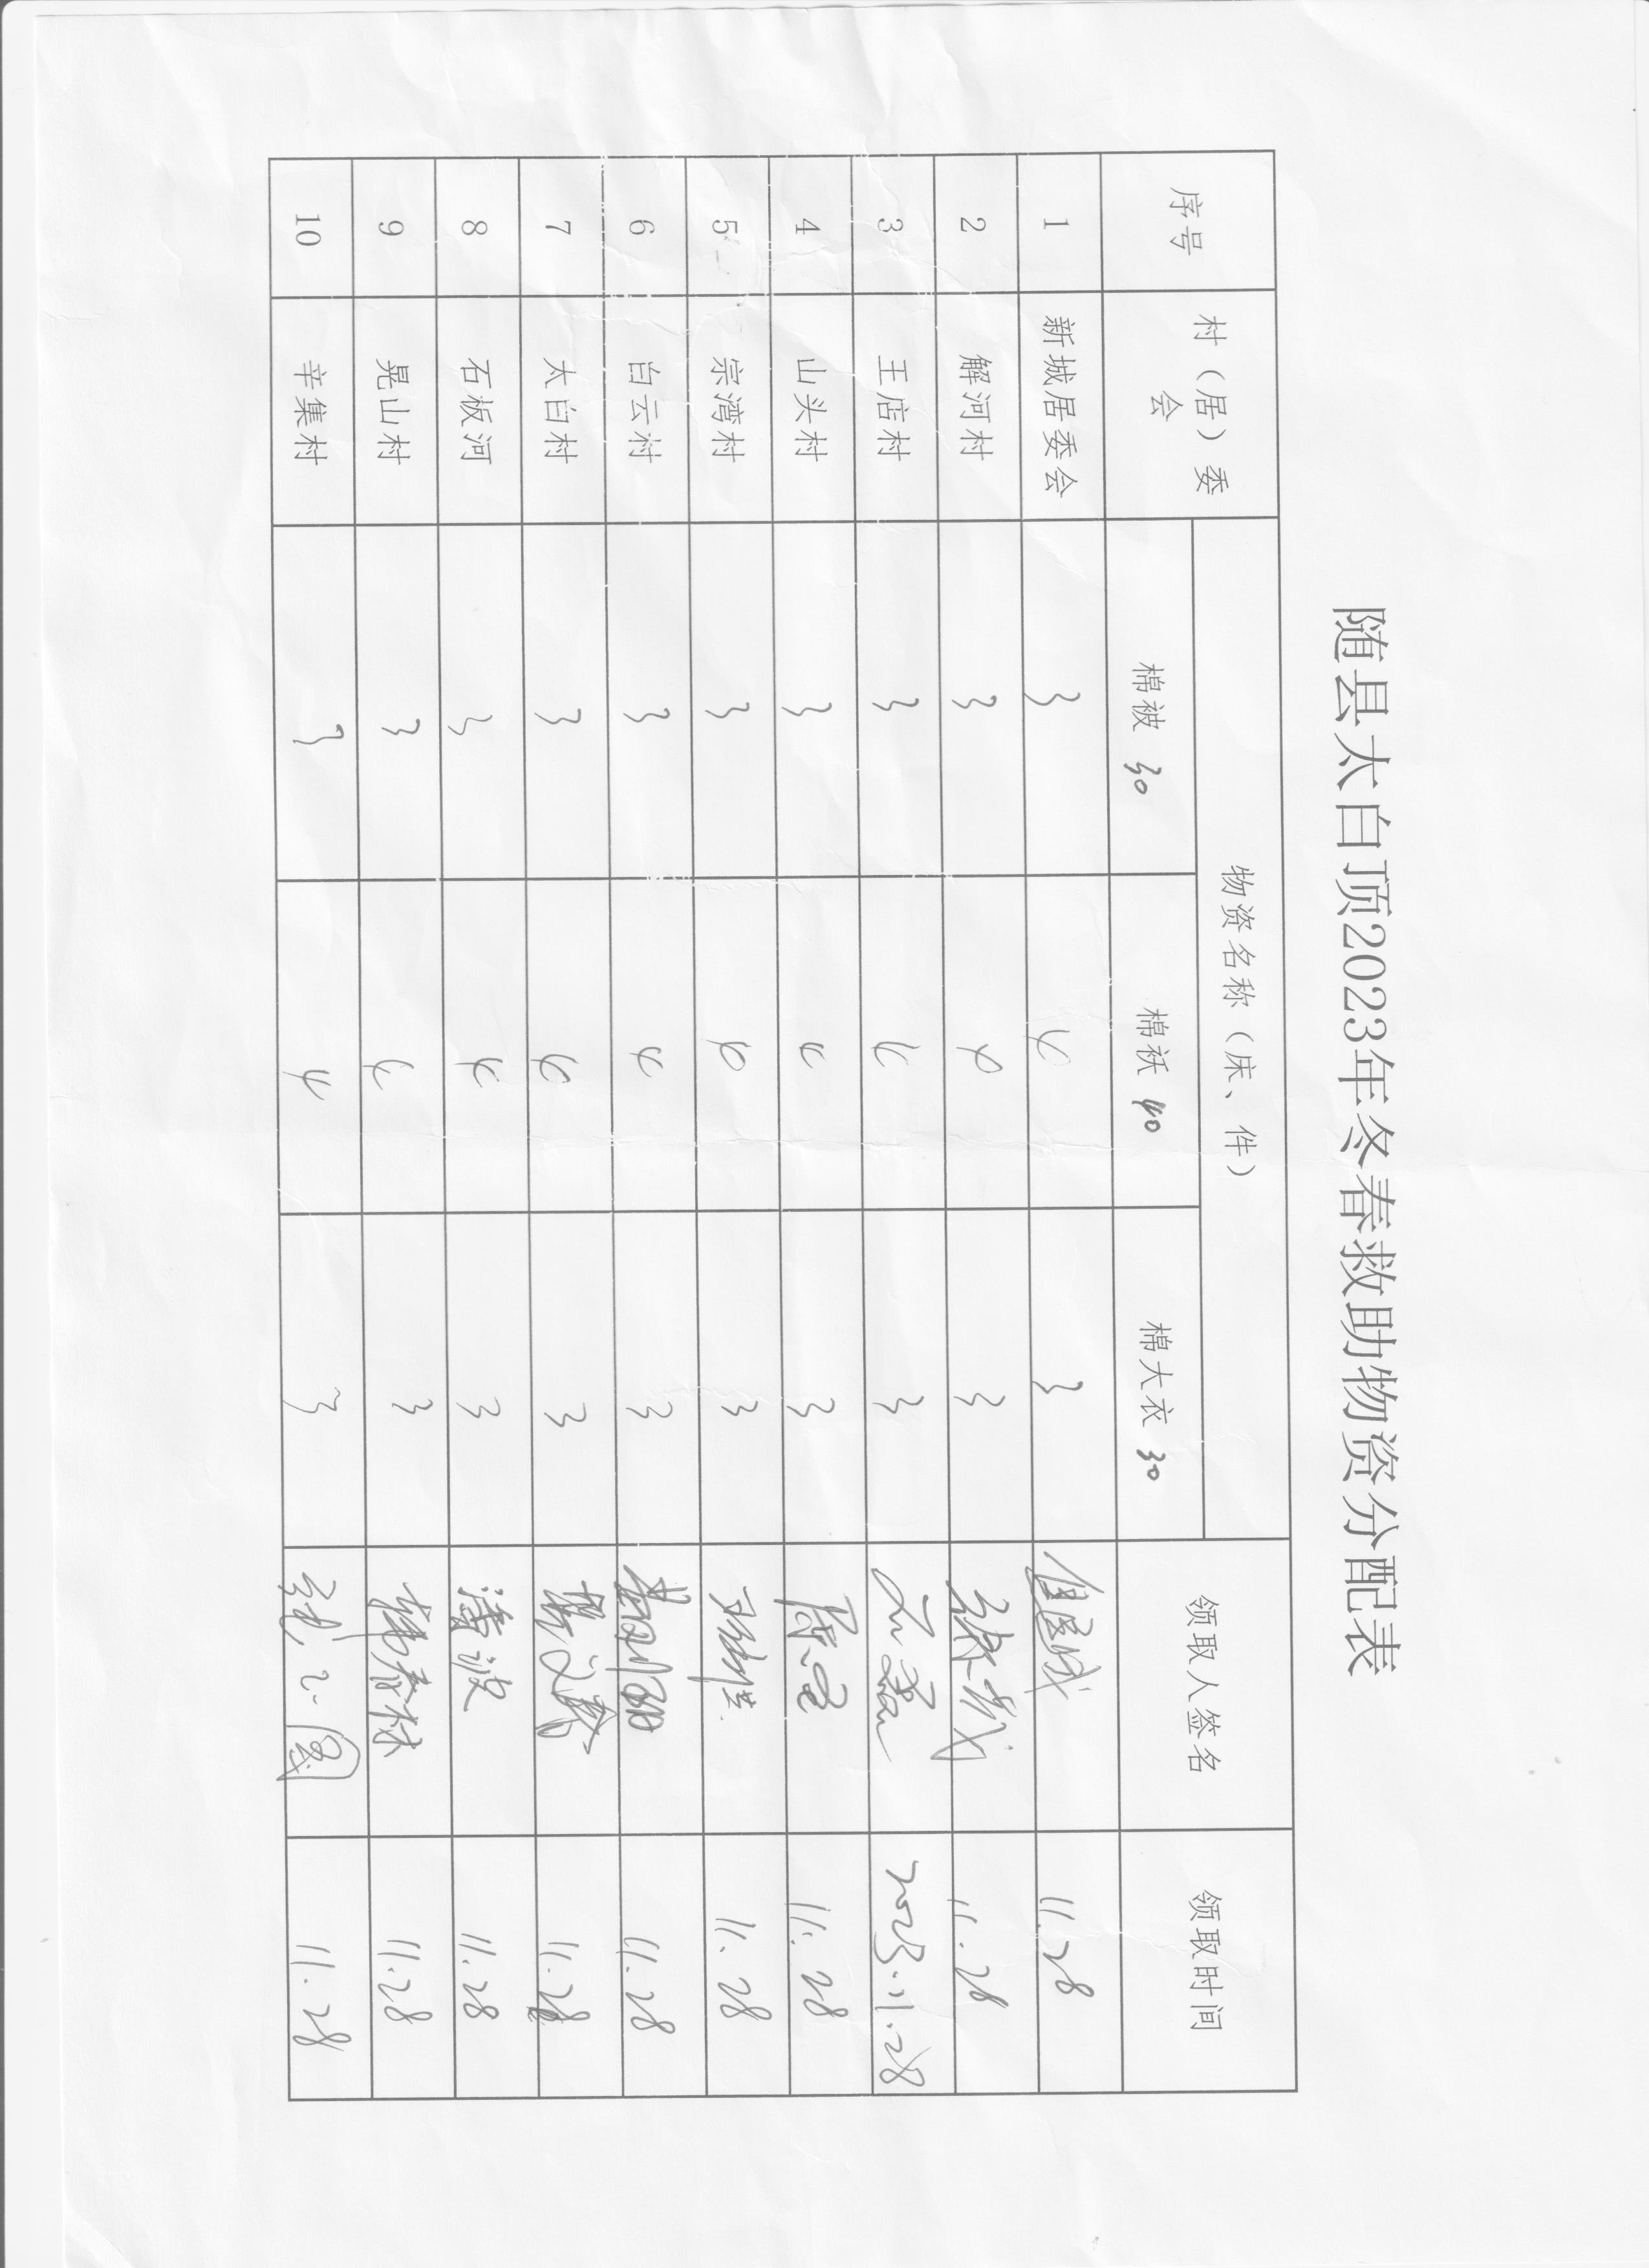 随县太白顶2023年冬春救助物资分配表
序号 村（居）委会 物资名称（床、件） 领取人签名 领取时间
棉被 30 棉袄 40 棉大衣 30
1 新城居委会 3 4 3 11.28
2 解河村 3 4 3 11.28
3 王店村 3 4 3 2023.11.28
4 山头村 3 4 3 11.28
5 宗湾村 3 4 3 11.28
6 白云村 3 4 3 11.28
7 太白村 3 4 3 11.28
8 石板河 3 4 3 潘波 11.28
9 晃山村 3 4 3 11.28
10 辛集村 3 4 3 11.28